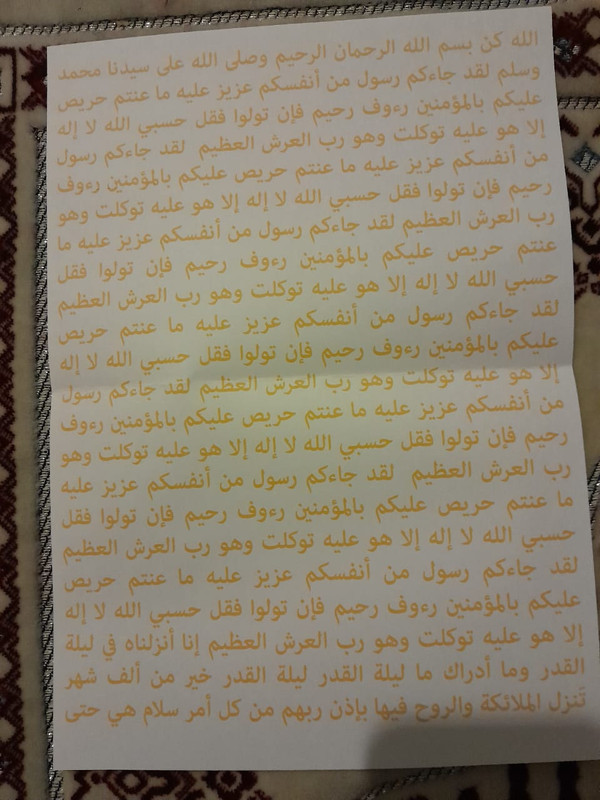 الله كن بسم الله الرحمان الرحيم وصلى الله على سيدنا محمد
وسلم لقد جاءكم رسول من أنفسكم عزيز عليه ما عنتم حريص
عليكم بالمؤمنين رءوف رحيم فإن تولوا فقل حسبي الله لا إله
إلا هو عليه توكلت وهو رب العرش العظيم لقد جاءكم رسول
من أنفسكم عزيز عليه ما عنتم حريص عليكم بالمؤمنين رءوف
رحيم فإن تولوا فقل حسبي الله لا إله إلا هو عليه توكلت وهو
رب العرش العظيم لقد جاءكم رسول من أنفسكم عزيز عليه ما
عنتم حريص عليكم بالمؤمنين رءوف رحيم فإن تولوا فقل
حسبي الله لا إله إلا هو عليه توكلت وهو رب العرش العظيم
لقد جاءكم رسول من أنفسكم عزيز عليه ما عنتم حريص
عليكم بالمؤمنين رءوف رحيم فإن تولوا فقل حسبي الله لا إله
إلا هو عليه توكلت وهو رب العرش العظيم لقد جاءكم رسول
من أنفسكم عزيز عليه ما عنتم حريص عليكم بالمؤمنين رءوف
رحيم فإن تولوا فقل حسبي الله لا إله إلا هو عليه توكلت وهو
رب العرش العظيم لقد جاءكم رسول من أنفسكم عزيز عليه
ما عنتم حريص عليكم بالمؤمنين رءوف رحيم فإن تولوا فقل
حسبي الله لا إله إلا هو عليه توكلت وهو رب العرش العظيم
لقد جاءكم رسول من أنفسكم عزيز عليه ما عنتم حريص
عليكم بالمؤمنين رءوف رحيم فإن تولوا فقل حسبي الله لا إله
إلا هو عليه توكلت وهو رب العرش العظيم إنا أنزلناه في ليلة
القدر وما أدراك ما ليلة القدر ليلة القدر خير من ألف شهر
تَنزل الملائكة والروح فيها بإذن ربهم من كل أمر سلام هي حتى